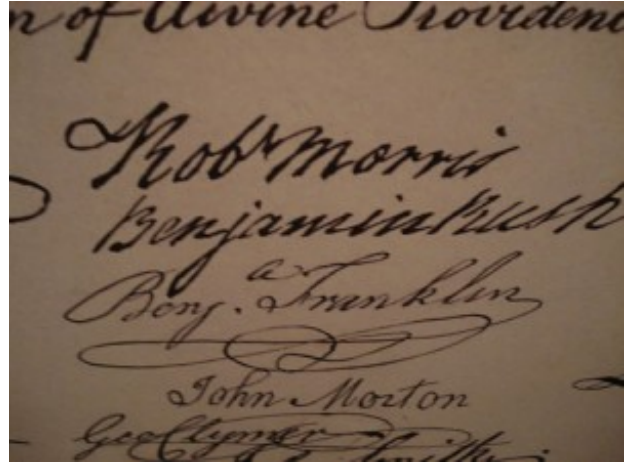 n of divine Providenc
Robt Morris
Benjamin Rush
Benj. Franklin
John Morton
Geo Clymer